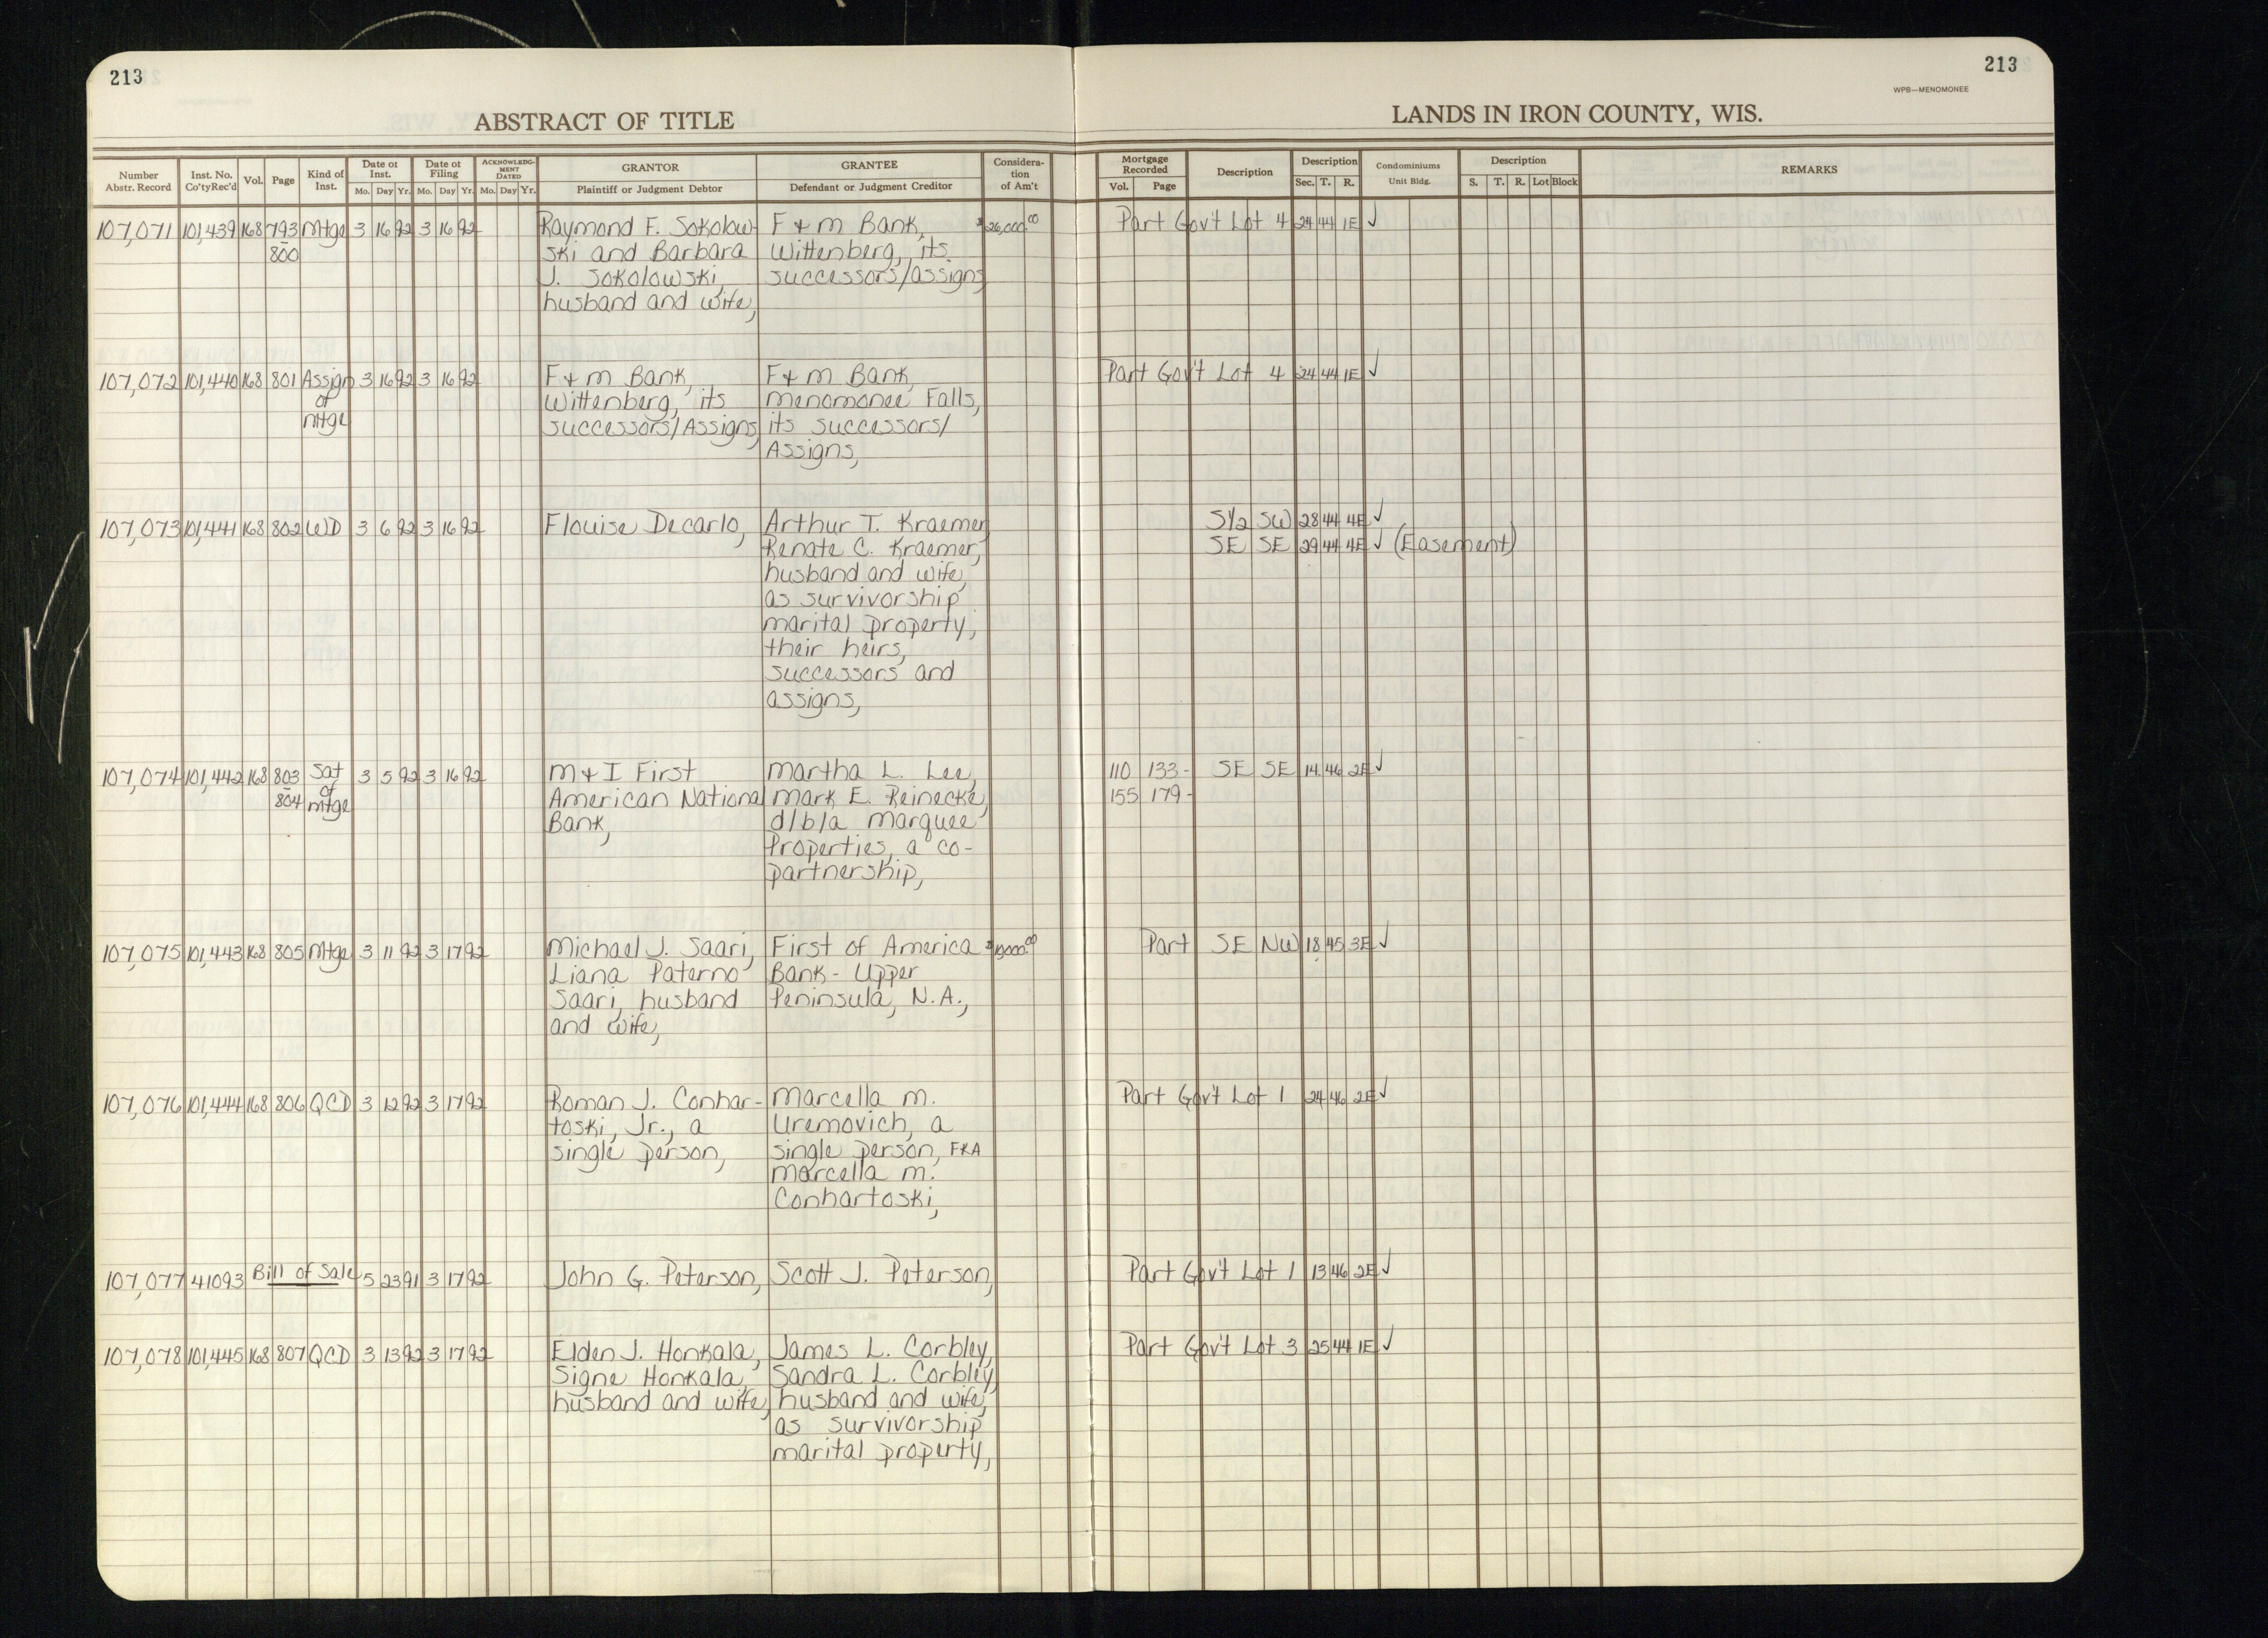 213
213
WPB—MENOMONEE
ABSTRACT OF TITLE
LANDS IN IRON COUNTY, WIS.
Number Abstr. Record | Inst. No. Co'tyRec'd | Vol. | Page | Kind of Inst. | Date of Inst. Mo. Day Yr. | Date of Filing Mo. Day Yr. | ACKNOWLEDGMENT DATED Mo. Day Yr. | GRANTOR Plaintiff or Judgment Debtor | GRANTEE Defendant or Judgment Creditor | Consideration of Am't | Mortgage Recorded Vol. Page | Description | Description Sec. T. R. | Condominiums Unit Bldg. | Description S. T. R. Lot Block | REMARKS
107,071 101,439 168 793 Mtge 3 16 92 3 16 92 Raymond F. Sokolow- F & M Bank, $26,000.00 Part Gov't Lot 4 24 44 1E ✓
- 800 ski and Barbara Wittenberg, its
J. Sokolowski, successors/assigns
husband and wife,
107,072 101,440 168 801 Assign 3 16 92 3 16 92 F & M Bank, F & M Bank, Part Gov't Lot 4 24 44 1E ✓
of Wittenberg, its Menomonee Falls,
Mtge successors/Assigns, its successors/
Assigns,
107,073 101,441 168 802 WD 3 6 92 3 16 92 Flouise Decarlo, Arthur T. Kraemer, S1/2 SW 28 44 4E ✓
Renate C. Kraemer, SE SE 29 44 4E ✓ (Easement)
husband and wife,
as survivorship
marital property,
their heirs,
successors and
assigns,
107,074 101,442 168 803 Sat 3 5 92 3 16 92 M & I First Martha L. Lee, 110 133- SE SE 14 46 2E ✓
- 804 of Mtge American National Mark E. Reinecke, 155 179-
Bank, d/b/a Marquee
Properties, a co-
partnership,
107,075 101,443 168 805 Mtge 3 11 92 3 17 92 Michael J. Saari, First of America $19,000.00 Part SE NW 18 45 3E ✓
Liana Paterno Bank - Upper
Saari, husband Peninsula, N.A.,
and wife,
107,076 101,444 168 806 QCD 3 12 92 3 17 92 Roman J. Conhar- Marcella M. Part Gov't Lot 1 24 46 2E ✓
toski, Jr., a Uremovich, a
single person, single person, FKA
Marcella M.
Conhartoski,
107,077 41093 Bill of Sale 5 23 91 3 17 92 John G. Peterson, Scott J. Peterson, Part Gov't Lot 1 13 46 2E ✓
107,078 101,445 168 807 QCD 3 13 92 3 17 92 Elden J. Honkala, James L. Corbley, Part Gov't Lot 3 25 44 1E ✓
Signe Honkala, Sandra L. Corbley,
husband and wife, husband and wife,
as survivorship
marital property,